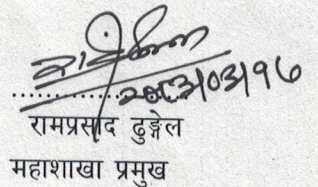 २०८३।०३।१७
रामप्रसाद ढुङ्गेल
महाशाखा प्रमुख